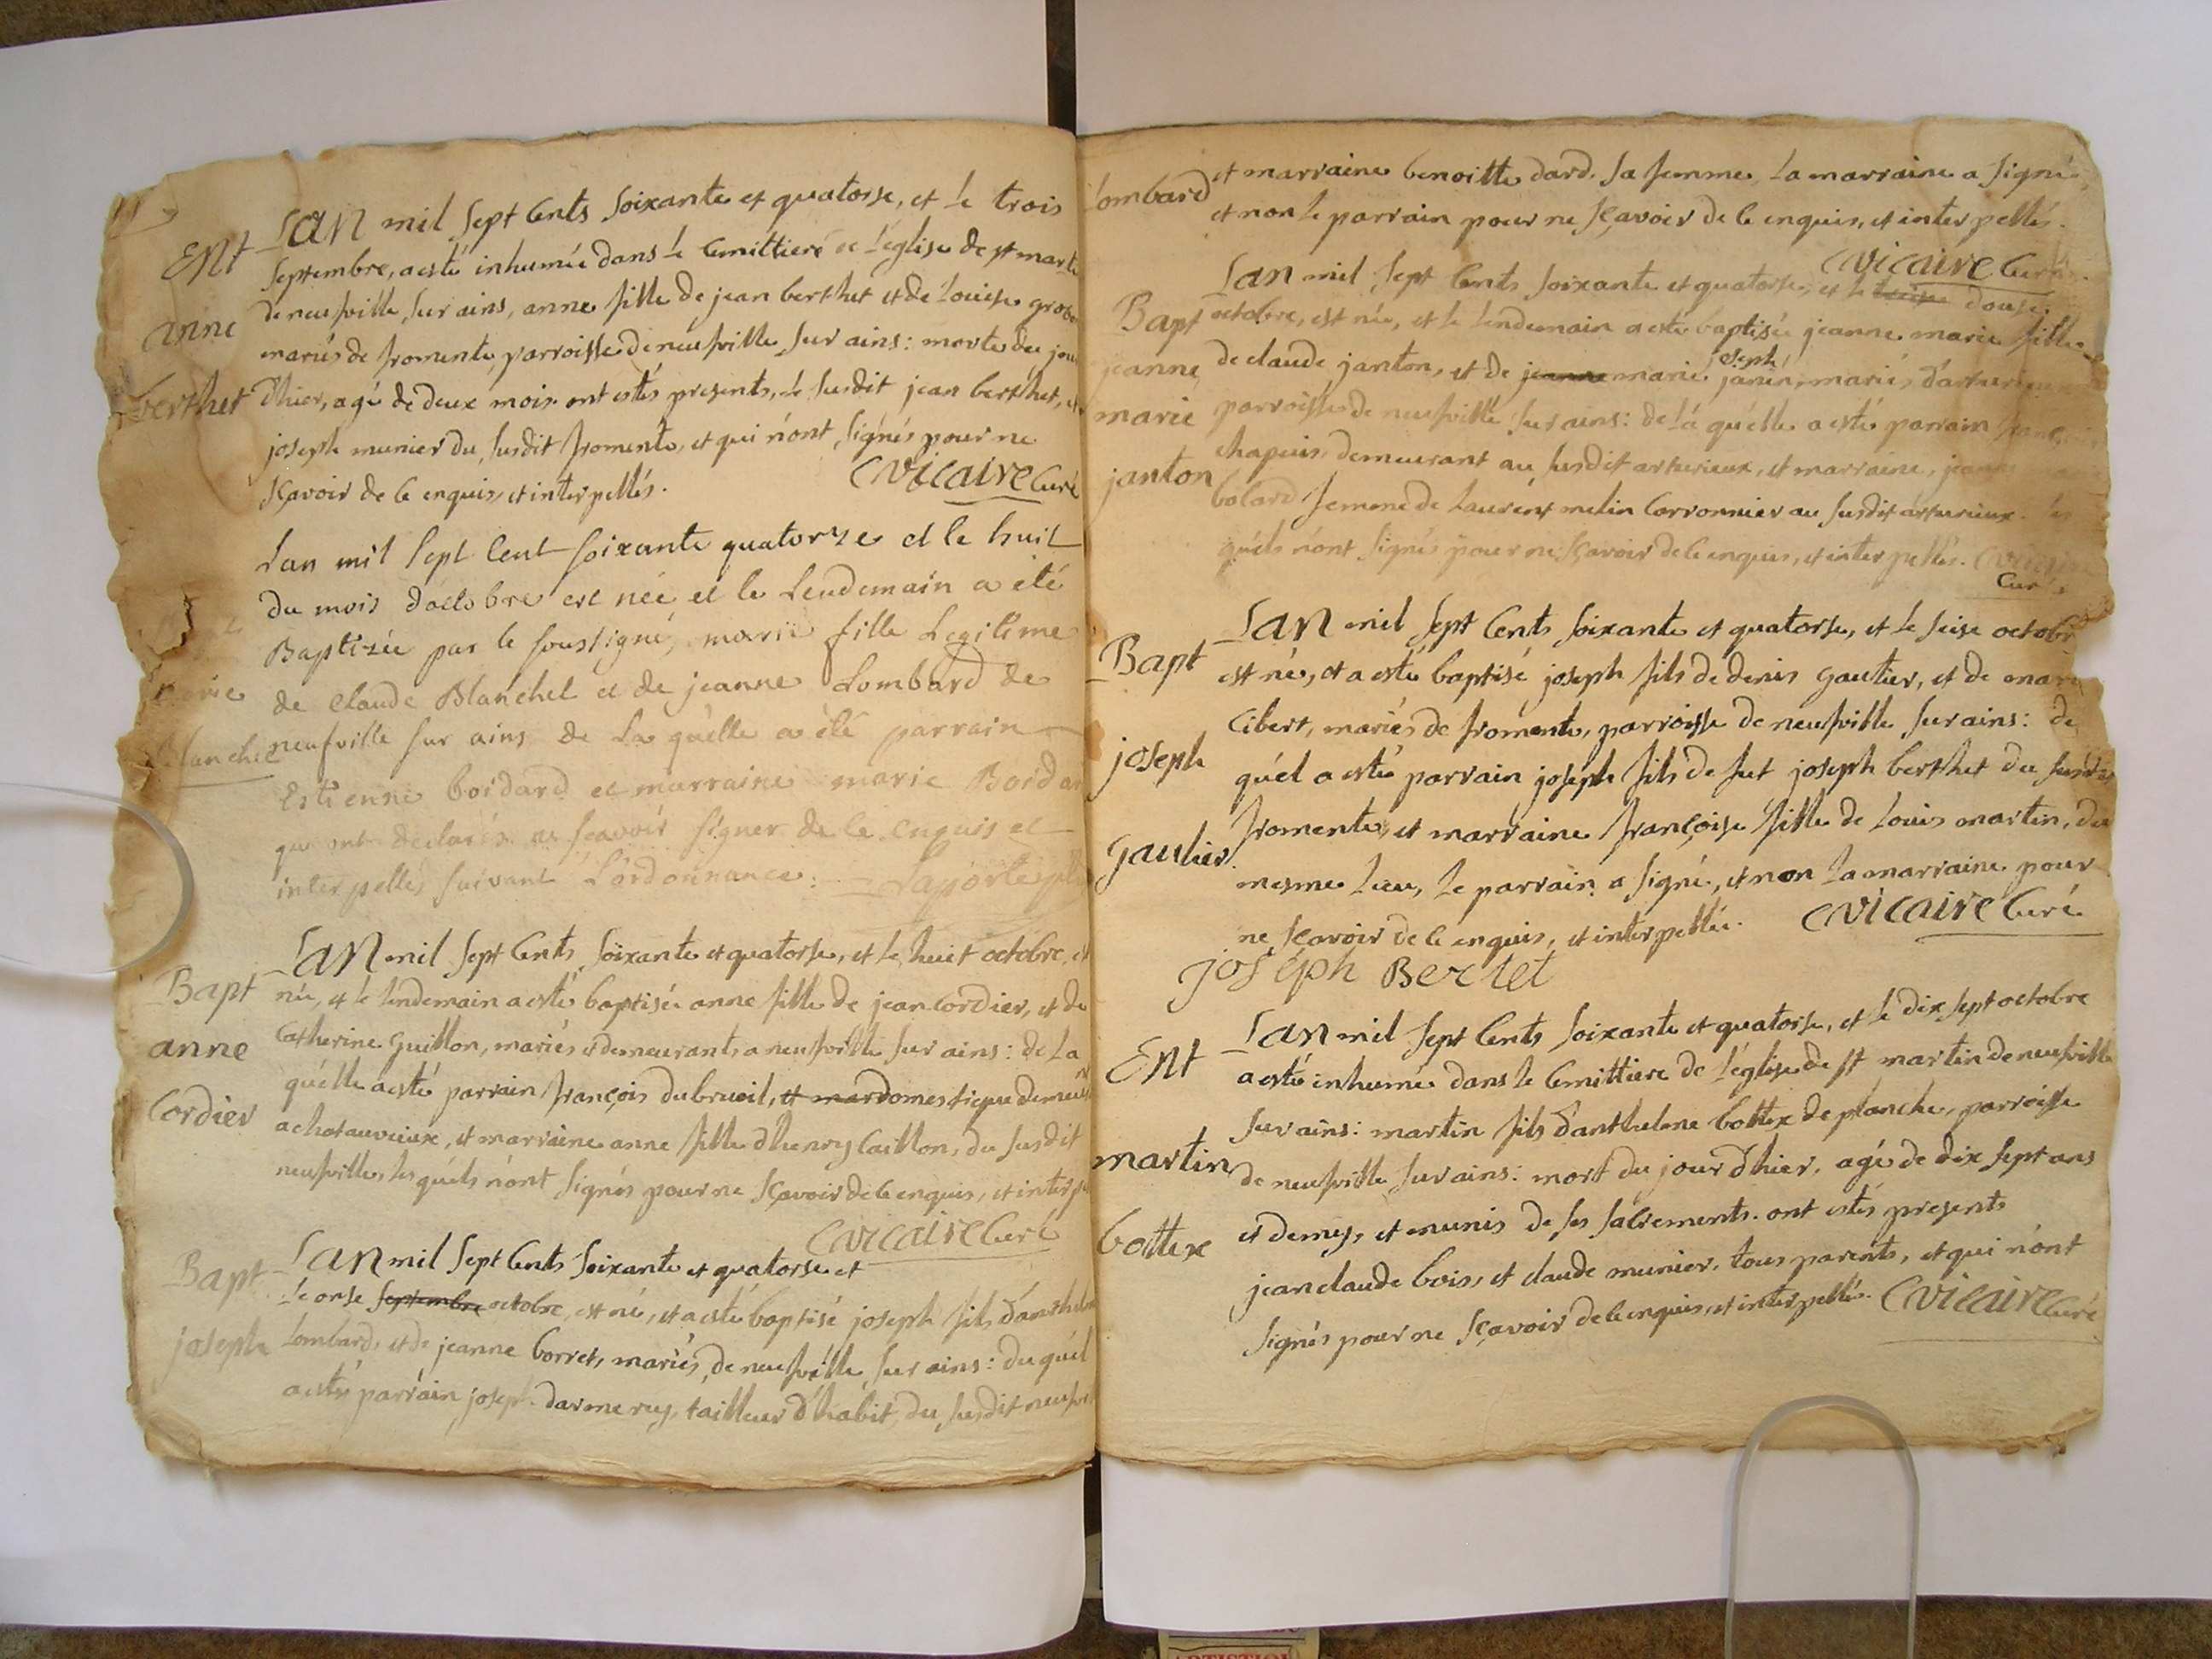 Ent
anne
berthet
Lan mil sept cents soixante et quatorse, et le trois
septembre, a esté inhumée dans le cemittiere de l'église de st martin
de neufville sur ains, anne fille de jean berthet et de Louise
mariés de fromente, parroisse de neufville sur ains: morte du jour
d'hier, agé de deux mois. ont estés presents, le susdit jean berthet, et
joseph munier du susdit fromente, et qui n'ont signés pour ne
sçavoir de ce enquis, et interpellés. Cvicaire Curé
marie
Blanchet
Lan mil sept cent soixante quatorze et le huit
du mois d'octobre est née et le lendemain a été
Baptizée par le soussigné, marie fille Legitime
de Claude Blanchet et de jeanne Lombard de
neufville sur ains de La quelle a été parrain
Estienne boidard et marraine marie Boidar
qui ont declarés ne sçavoir signer de ce enquis et
interpellés suivant L'ordonnance: Laporte
Bapt
anne
Cordier
Lan mil sept cents soixante et quatorse, et le huit octobre, est
née, et le lendemain a esté baptisée anne fille de jean Cordier, et de
Catherine Guillon, mariés et demeurants a neufville sur ains: de La
quélle a esté parrain françois dubrueil, et mar domestique demeur
a chotauvieux, et marraine anne fille d'henry Caillon, du susdit
neufville, les quéls n'ont signés pour ne sçavoir de ce enquis, et interpe
Cvicaire Curé
Bapt
joseph
Lan mil sept cents soixante et quatorse et
le onse septembre octobre, est né, et a esté baptisé joseph fils d'anthelme
Lombard, et de jeanne borret, mariés, de neufville sur ains: du quél
a esté parrain joseph darmerey, tailleur d'habit, du susdit neufvil
Lombard
et marraine benoitte dard. sa femme, La marraine a signé,
et non le parrain pour ne sçavoir de ce enquis, et interpellés.
Cvicaire Curé
Bapt
jeanne
marie
janton
Lan mil sept cents soixante et quatorse, et le douse
octobre, est née, et le lendemain a esté baptisée jeanne marie fille
de claude janton, et de jeanne marie joseph janin, mariés, d'arturieux
parroisse de neufville sur ains: de la quélle a esté parrain
chapuis demeurant au susdit arturieux, et marraine, jeanne
bolard femme de Laurent melin Corronnier au susdit arturieux. les
quéls n'ont signés pour ne sçavoir de ce enquis, et interpellés. Cvicaire
Curé
Bapt
joseph
gautier
Lan mil sept cents soixante et quatorse, et le seise octobre
est né, et a esté baptisé joseph fils de denis gautier, et de marie
Cibert, mariés de fromente, parroisse de neufville sur ains: du
quél a esté parrain joseph fils de fut joseph berthet du susdit
fromente, et marraine françoise fille de Louis martin, du
mesme Lieu, Le parrain a signé, et non La marraine pour
ne sçavoir de ce enquis, et interpellée. Cvicaire Curé
joseph Bertet
Ent
martin
bottex
Lan mil sept cents soixante et quatorse, et le dix sept octobre
a esté inhumé dans le Cemittiere de l'église de st martin de neufville
sur ains: martin fils d'anthelme bottex de planche, parroisse
de neufville sur ains: mort du jour d'hier, agé de dix sept ans
et demy, et munis de ses sacrements. ont estés presents
jean claude bois, et claude munier, tous parents, et qui n'ont
signés pour ne sçavoir de ce enquis, et interpellés. Cvicaire Curé